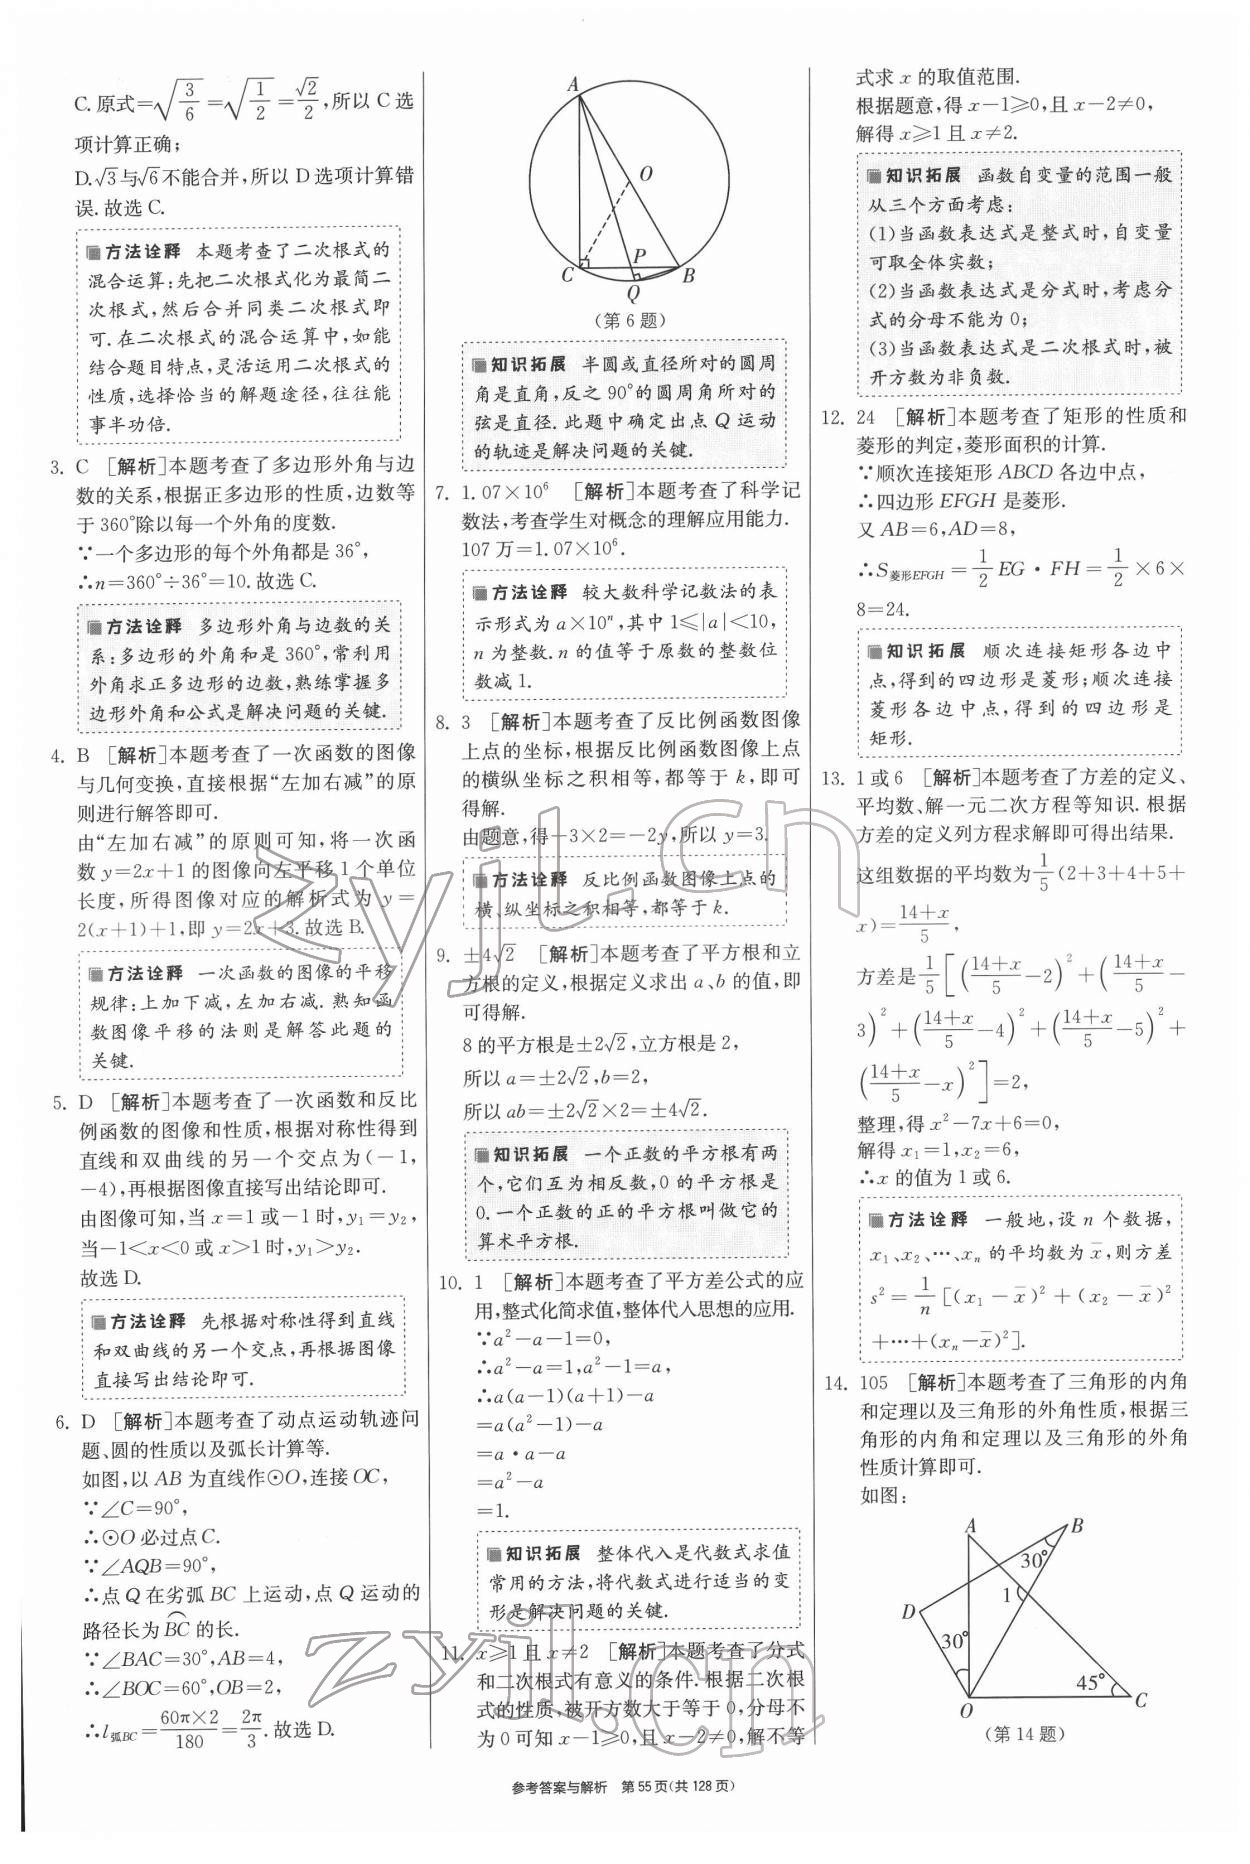 C.原式=√(3/6)=√(1/2)=√2/2,所以 C 选
项计算正确;
D.√3与√6不能合并,所以 D 选项计算错
误.故选 C.
方法诠释 本题考查了二次根式的
混合运算:先把二次根式化为最简二
次根式,然后合并同类二次根式即
可.在二次根式的混合运算中,如能
结合题目特点,灵活运用二次根式的
性质,选择恰当的解题途径,往往能
事半功倍.
3. C [解析]本题考查了多边形外角与边
数的关系,根据正多边形的性质,边数等
于 360°除以每一个外角的度数.
∵一个多边形的每个外角都是 36°,
∴n=360°÷36°=10.故选 C.
方法诠释 多边形外角与边数的关
系:多边形的外角和是 360°,常利用
外角求正多边形的边数,熟练掌握多
边形外角和公式是解决问题的关键.
4. B [解析]本题考查了一次函数的图像
与几何变换,直接根据“左加右减”的原
则进行解答即可.
由“左加右减”的原则可知,将一次函
数 y=2x+1 的图像向左平移 1 个单位
长度,所得图像对应的解析式为 y=
2(x+1)+1,即 y=2x+3.故选 B.
方法诠释 一次函数的图像的平移
规律:上加下减,左加右减.熟知函
数图像平移的法则是解答此题的
关键.
5. D [解析]本题考查了一次函数和反比
例函数的图像和性质,根据对称性得到
直线和双曲线的另一个交点为(-1,
-4),再根据图像直接写出结论即可.
由图像可知,当 x=1 或-1 时,y₁=y₂,
当-1<x<0 或 x>1 时,y₁>y₂.
故选 D.
方法诠释 先根据对称性得到直线
和双曲线的另一个交点,再根据图像
直接写出结论即可.
6. D [解析]本题考查了动点运动轨迹问
题、圆的性质以及弧长计算等.
如图,以 AB 为直线作⊙O,连接 OC,
∵∠C=90°,
∴⊙O 必过点 C.
∵∠AQB=90°,
∴点 Q 在劣弧 BC 上运动,点 Q 运动的
路径长为⌒BC 的长.
∵∠BAC=30°,AB=4,
∴∠BOC=60°,OB=2,
∴l弧BC=60π×2/180=2π/3.故选 D.
A
O
C
P
B
Q
(第 6 题)
知识拓展 半圆或直径所对的圆周
角是直角,反之 90°的圆周角所对的
弦是直径.此题中确定出点 Q 运动
的轨迹是解决问题的关键.
7. 1.07×10⁶ [解析]本题考查了科学记
数法,考查学生对概念的理解应用能力.
107 万=1.07×10⁶.
方法诠释 较大数科学记数法的表
示形式为 a×10ⁿ,其中 1≤|a|<10,
n 为整数.n 的值等于原数的整数位
数减 1.
8. 3 [解析]本题考查了反比例函数图像
上点的坐标,根据反比例函数图像上点
的横纵坐标之积相等,都等于 k,即可
得解.
由题意,得-3×2=-2y,所以 y=3.
方法诠释 反比例函数图像上点的
横、纵坐标之积相等,都等于 k.
9. ±4√2 [解析]本题考查了平方根和立
方根的定义,根据定义求出 a、b 的值,即
可得解.
8 的平方根是±2√2,立方根是 2,
所以 a=±2√2,b=2,
所以 ab=±2√2×2=±4√2.
知识拓展 一个正数的平方根有两
个,它们互为相反数,0 的平方根是
0.一个正数的正的平方根叫做它的
算术平方根.
10. 1 [解析]本题考查了平方差公式的应
用,整式化简求值,整体代入思想的应用.
∵a²-a-1=0,
∴a²-a=1,a²-1=a,
∴a(a-1)(a+1)-a
=a(a²-1)-a
=a·a-a
=a²-a
=1.
知识拓展 整体代入是代数式求值
常用的方法,将代数式进行适当的变
形是解决问题的关键.
11. x≥1 且 x≠2 [解析]本题考查了分式
和二次根式有意义的条件.根据二次根
式的性质,被开方数大于等于 0,分母不
为 0 可知 x-1≥0,且 x-2≠0,解不等
式求 x 的取值范围.
根据题意,得 x-1≥0,且 x-2≠0,
解得 x≥1 且 x≠2.
知识拓展 函数自变量的范围一般
从三个方面考虑:
(1)当函数表达式是整式时,自变量
可取全体实数;
(2)当函数表达式是分式时,考虑分
式的分母不能为 0;
(3)当函数表达式是二次根式时,被
开方数为非负数.
12. 24 [解析]本题考查了矩形的性质和
菱形的判定,菱形面积的计算.
∵顺次连接矩形 ABCD 各边中点,
∴四边形 EFGH 是菱形.
又 AB=6,AD=8,
∴S菱形EFGH=1/2 EG·FH=1/2×6×
8=24.
知识拓展 顺次连接矩形各边中
点,得到的四边形是菱形;顺次连接
菱形各边中点,得到的四边形是
矩形.
13. 1 或 6 [解析]本题考查了方差的定义、
平均数、解一元二次方程等知识.根据
方差的定义列方程求解即可得出结果.
这组数据的平均数为1/5(2+3+4+5+
x)=(14+x)/5,
方差是1/5[((14+x)/5-2)²+((14+x)/5-
3)²+((14+x)/5-4)²+((14+x)/5-5)²+
((14+x)/5-x)²]=2,
整理,得 x²-7x+6=0,
解得 x₁=1,x₂=6,
∴x 的值为 1 或 6.
方法诠释 一般地,设 n 个数据,
x₁、x₂、…、xₙ 的平均数为 x̄,则方差
s²=1/n[(x₁-x̄)²+(x₂-x̄)²
+…+(xₙ-x̄)²].
14. 105 [解析]本题考查了三角形的内角
和定理以及三角形的外角性质,根据三
角形的内角和定理以及三角形的外角
性质计算即可.
如图:
A
B
30°
1
D
30°
45°
O
C
(第 14 题)
参考答案与解析 第 55 页(共 128 页)
zyjl.cn
zyjl.cn